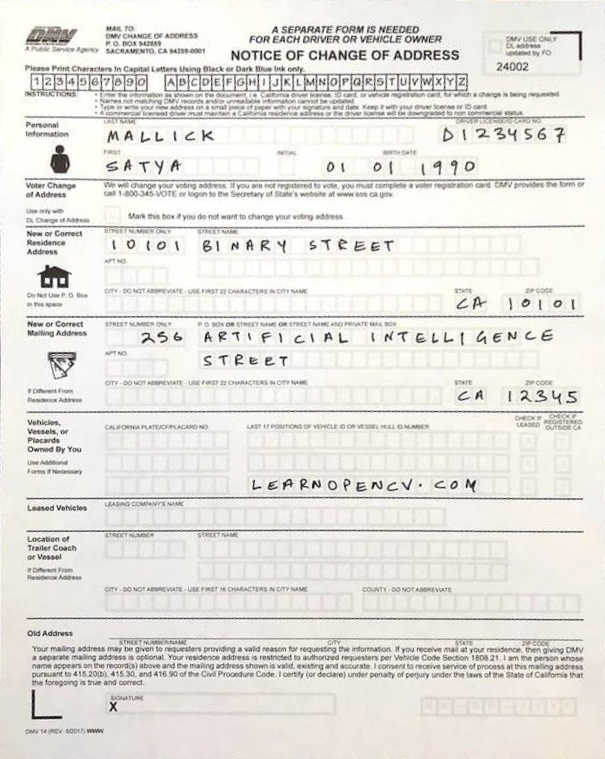 DMV
A Public Service Agency
MAIL TO:
DMV CHANGE OF ADDRESS
P. O. BOX 942859
SACRAMENTO, CA 94259-0001
A SEPARATE FORM IS NEEDED
FOR EACH DRIVER OR VEHICLE OWNER
NOTICE OF CHANGE OF ADDRESS
DMV USE ONLY
DL address
updated by FO
24002
Please Print Characters In Capital Letters Using Black or Dark Blue Ink only.
1 2 3 4 5 6 7 8 9 0 A B C D E F G H I J K L M N O P Q R S T U V W X Y Z
INSTRUCTIONS: • Enter the information as shown on the document, i.e. California driver license, ID card, or vehicle registration card, for which a change is being requested.
• Names not matching DMV records and/or unreadable information cannot be updated
• Type or write your new address on a small piece of paper with your signature and date. Keep it with your driver license or ID card.
• A commercial licensed driver must maintain a California residence address or the driver license will be downgraded to non commercial status
Personal
Information
LAST NAME
DRIVER LICENSE/ID CARD NO.
MALLICK D1234567
FIRST INITIAL BIRTH DATE
SATYA 01 01 1990
Voter Change
of Address
We will change your voting address. If you are not registered to vote, you must complete a voter registration card. DMV provides the form or
call 1-800-345-VOTE or logon to the Secretary of State's website at www.sos.ca.gov.
Use only with
DL Change of Address
Mark this box if you do not want to change your voting address.
New or Correct
Residence
Address
STREET NUMBER ONLY STREET NAME
10101 BINARY STREET
APT NO.
Do Not Use P. O. Box
in this space
CITY - DO NOT ABBREVIATE - USE FIRST 22 CHARACTERS IN CITY NAME STATE ZIP CODE
CA 10101
New or Correct
Mailing Address
STREET NUMBER ONLY P. O. BOX OR STREET NAME OR STREET NAME AND PRIVATE MAIL BOX
256 ARTIFICIAL INTELLIGENCE
APT NO.
STREET
If Different From
Residence Address
CITY - DO NOT ABBREVIATE - USE FIRST 22 CHARACTERS IN CITY NAME STATE ZIP CODE
CA 12345
Vehicles,
Vessels, or
Placards
Owned By You
CALIFORNIA PLATE/CF/PLACARD NO. LAST 17 POSITIONS OF VEHICLE ID OR VESSEL HULL ID NUMBER
CHECK IF
LEASED
CHECK IF
REGISTERED
OUTSIDE CA
Use Additional
Forms If Necessary
LEARNOPENCV.COM
Leased Vehicles
LEASING COMPANY'S NAME
Location of
Trailer Coach
or Vessel
STREET NUMBER STREET NAME
If Different From
Residence Address
CITY - DO NOT ABBREVIATE - USE FIRST 18 CHARACTERS IN CITY NAME COUNTY - DO NOT ABBREVIATE
Old Address
STREET NUMBER/NAME CITY STATE ZIP CODE
Your mailing address may be given to requesters providing a valid reason for requesting the information. If you receive mail at your residence, then giving DMV
a separate mailing address is optional. Your residence address is restricted to authorized requesters per Vehicle Code Section 1808.21. I am the person whose
name appears on the record(s) above and the mailing address shown is valid, existing and accurate. I consent to receive service of process at this mailing address
pursuant to 415.20(b), 415.30, and 416.90 of the Civil Procedure Code. I certify (or declare) under penalty of perjury under the laws of the State of California that
the foregoing is true and correct.
SIGNATURE
X
DMV 14 (REV. 5/2017) WWW